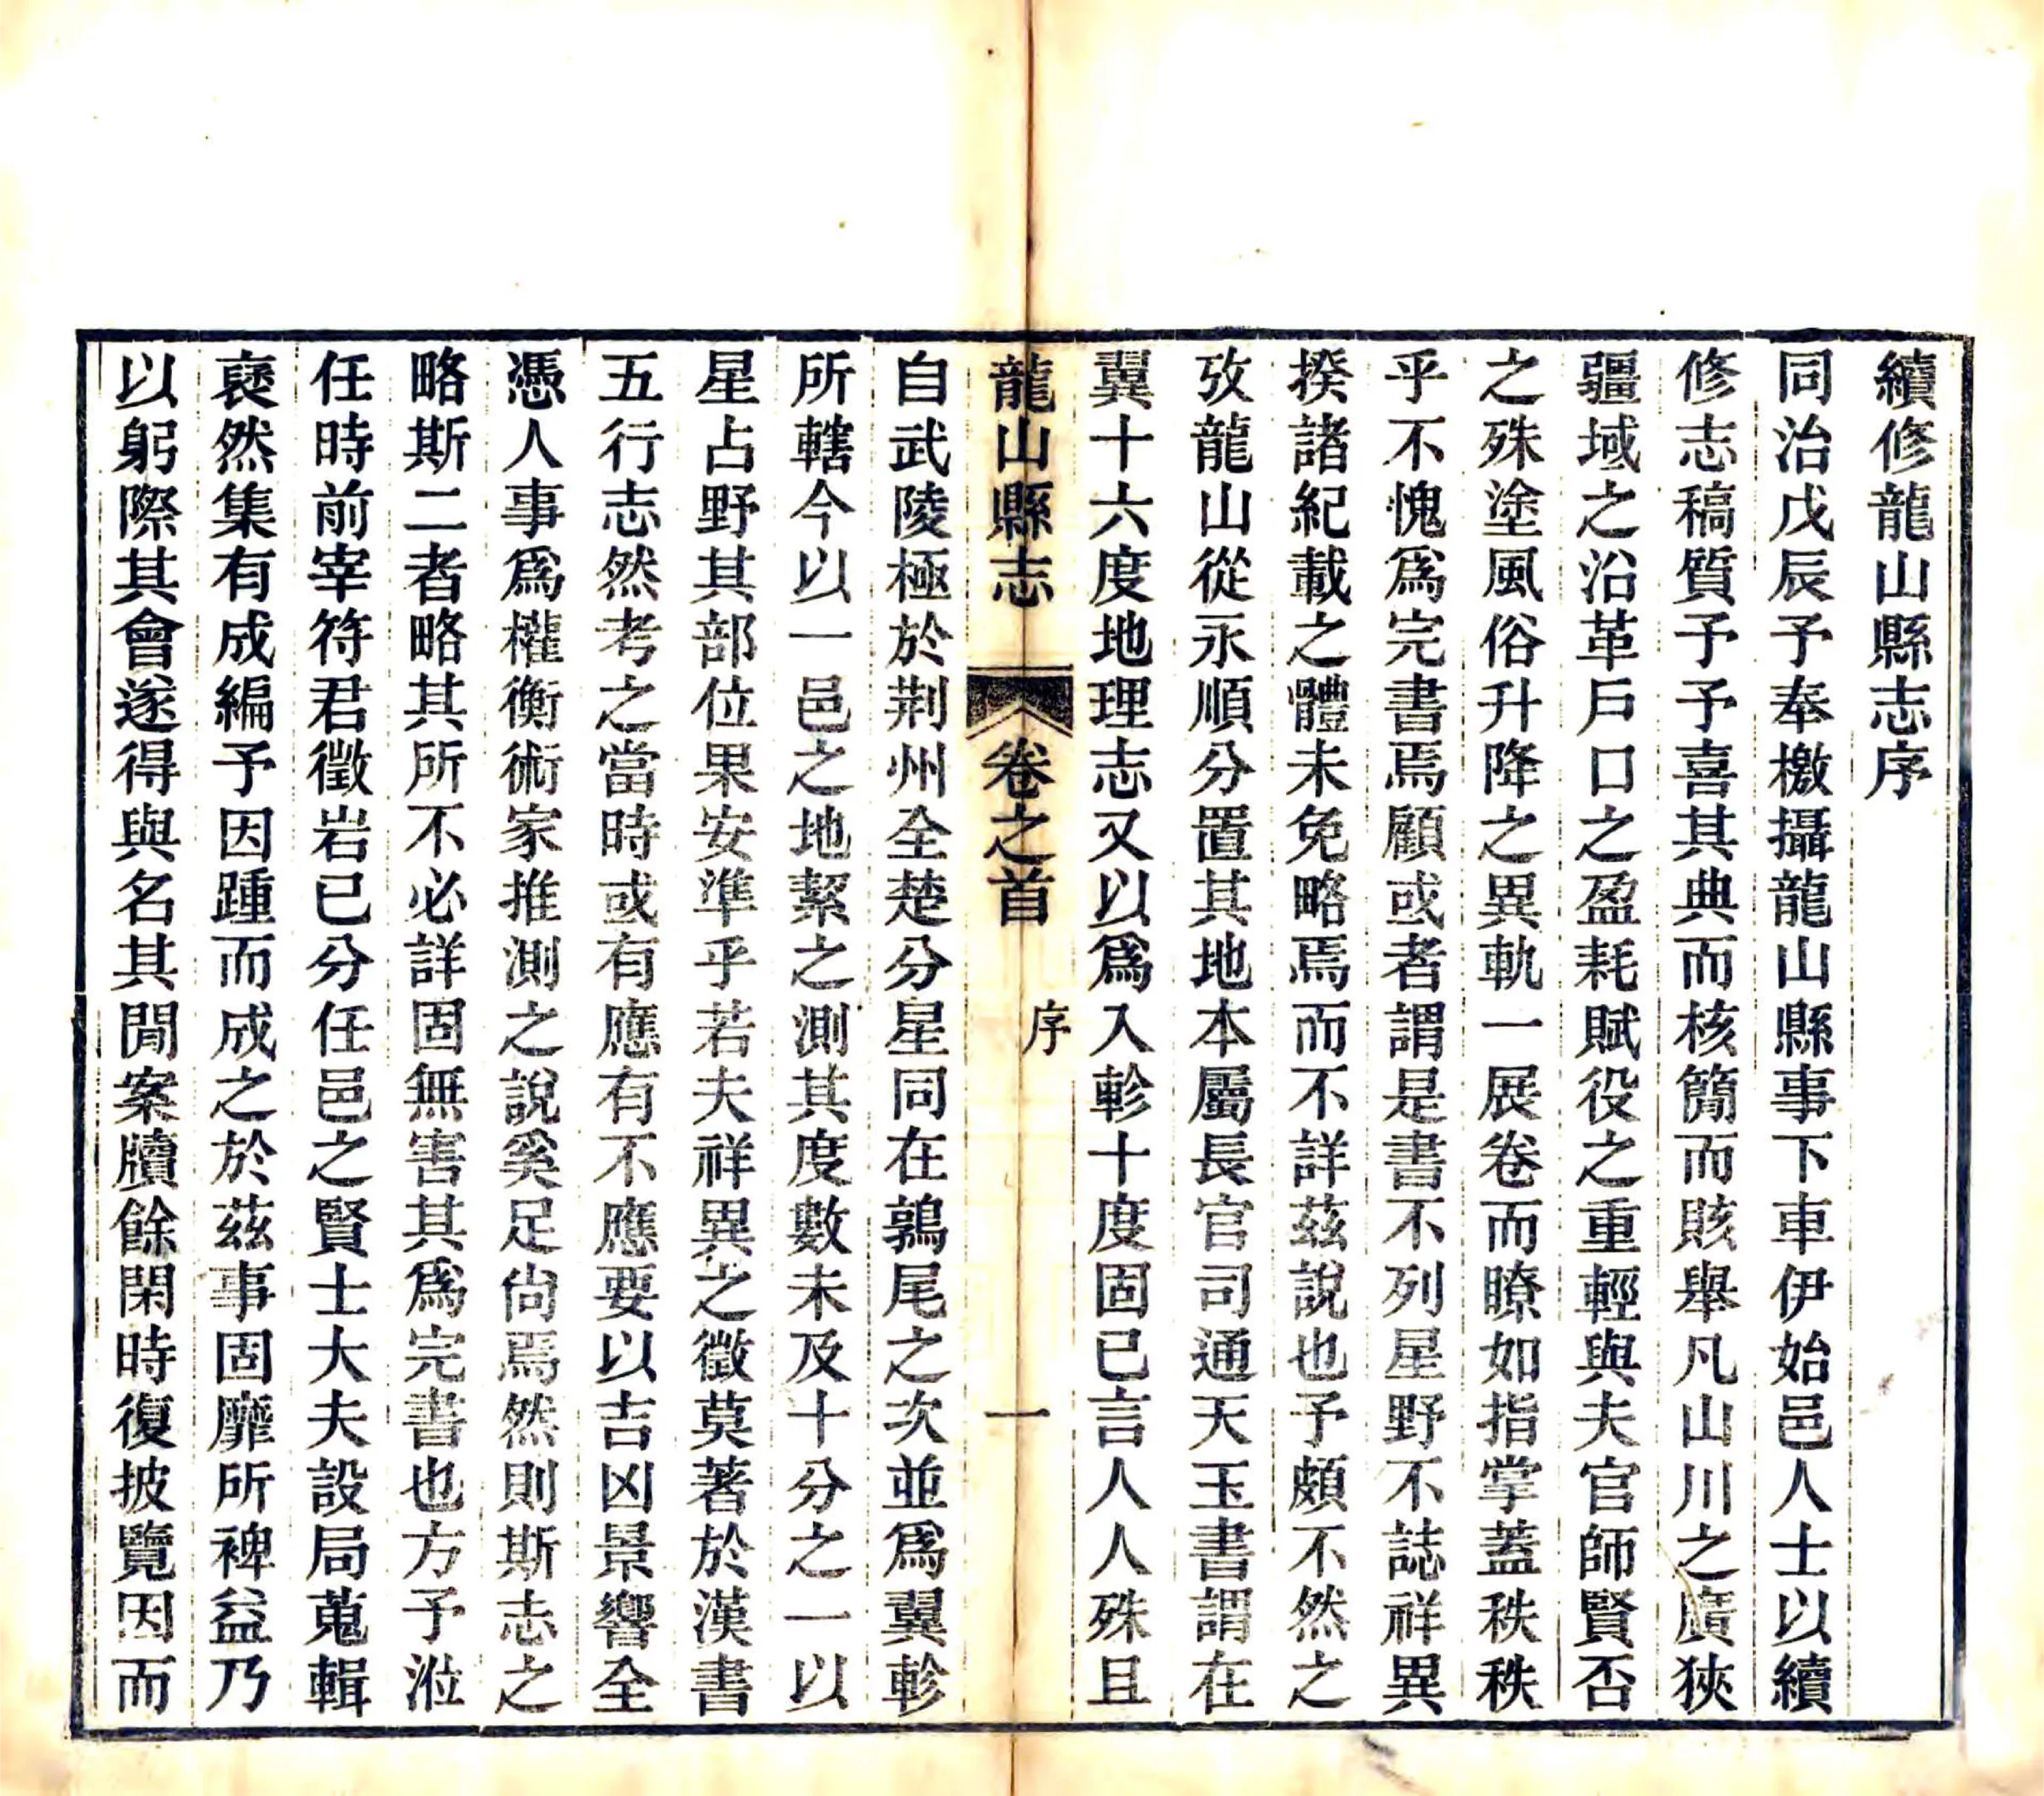 續修龍山縣志序
同治戊辰予奉檄攝龍山縣事下車伊始邑人士以續
修志稿質予予喜其典而核簡而賅舉凡山川之廣狹
疆域之沿革戶口之盈耗賦役之重輕與夫官師賢否
之殊塗風俗升降之異軌一展卷而瞭如指掌蓋秩秩
乎不愧爲完書焉顧或者謂是書不列星野不誌祥異
揆諸紀載之體未免略焉而不詳茲說也予頗不然之
攷龍山從永順分置其地本屬長官司通天玉書謂在
翼十六度地理志又以爲入軫十度固已言人人殊且
龍山縣志 卷之首 序 一
自武陵極於荆州全楚分星同在鶉尾之次並爲翼軫
所轄今以一邑之地絜之測其度數未及十分之一以
星占野其部位果安準乎若夫祥異之徵莫著於漢書
五行志然考之當時或有應有不應要以吉凶景響全
憑人事爲權衡術家推測之說奚足尙焉然則斯志之
略斯二者略其所不必詳固無害其爲完書也方予涖
任時前宰符君徵岩已分任邑之賢士大夫設局蒐輯
裒然集有成編予因踵而成之於茲事固靡所裨益乃
以躬際其會遂得與名其間案牘餘閑時復披覽因而